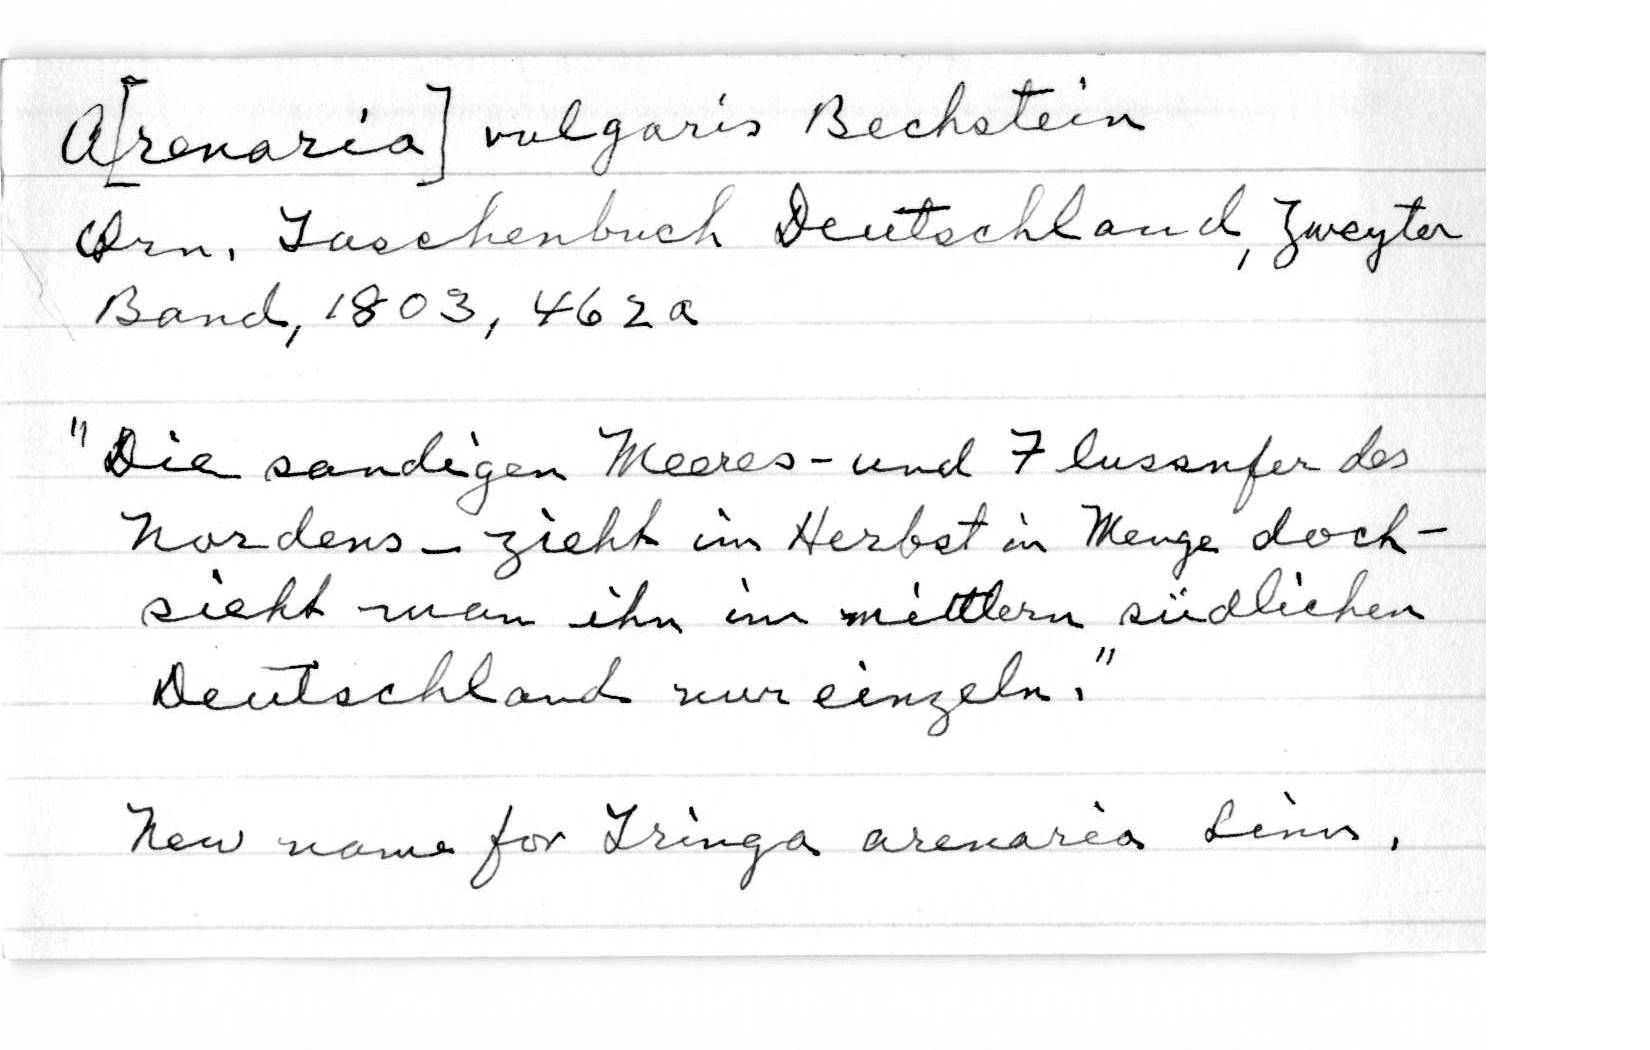 A[renaria] vulgaris Bechstein
Orn. Taschenbuch Deutschland, Zweyter
Band, 1803, 462a
"Die sandigen Meeres-und Flussufer des
Nordens - zieht im Herbst in Menge doch -
sieht man ihn im mittlern südlichen
Deutschland nur einzeln."
New name for Tringa arenaria Linn.